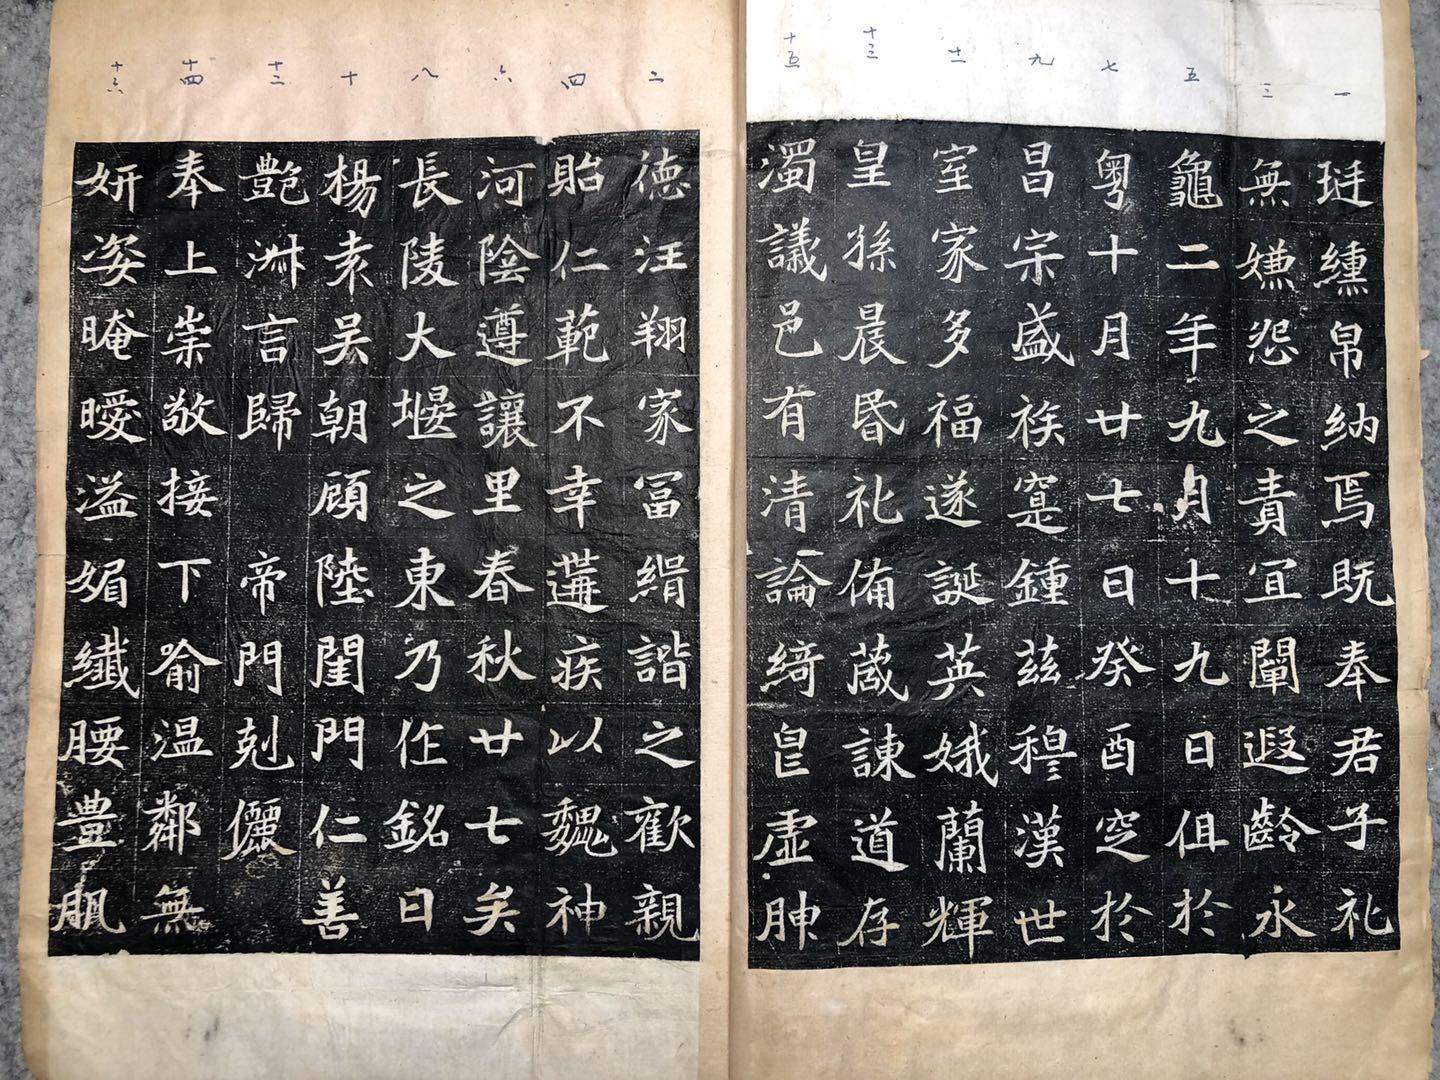 一 珽纁帛納焉既奉君子礼
三 無嫌怨之責宜闡遐齡永
五 龜二年九月十九日徂於
七 粵十月廿七日癸酉窆於
九 昌宗盛族寔鍾茲穆漢世
十一 室家多福遂誕英娥蘭輝
十三 皇孫晨昏礼備葴諫道存
十五 濁議邑有清論綺皃虛胂
二 德汪翔家冨絹諧之歡親
四 貽仁範不幸遘疾以魏神
六 河陰遵讓里春秋廿七矣
八 長陵大堰之東乃作銘曰
十 楊袁吳朝顧陸閨門仁善
十二 艷淋言歸 帝門剋儷
十四 奉上崇敬接下喻温鄰無
十六 妍姿晻曖溢媚纖腰豊肌